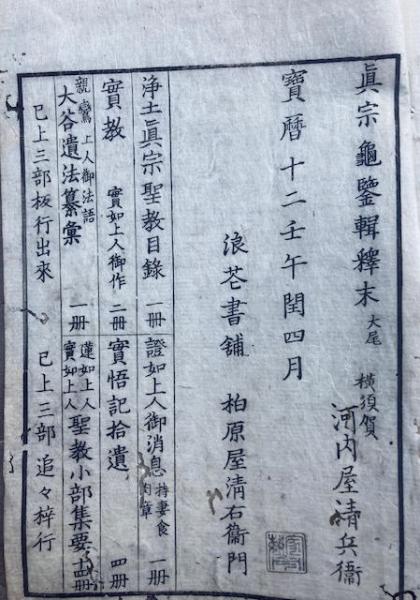 眞宗龜鑒輯釋末 大尾
横須賀
河内屋請兵衞
寶暦十二壬午閏四月
浪芲書舗 柏原屋清右衞門
浄土眞宗聖教目錄 一册
證如上人御消息 持妻食肉章 一册
實教 實如上人御作 二册
實悟記拾遺 四册
親鸞上人御法語
大谷遺法纂彙 一册
蓮如上人實如上人 聖教小部集要 册
已上三部板行出來
已上三部追々梓行